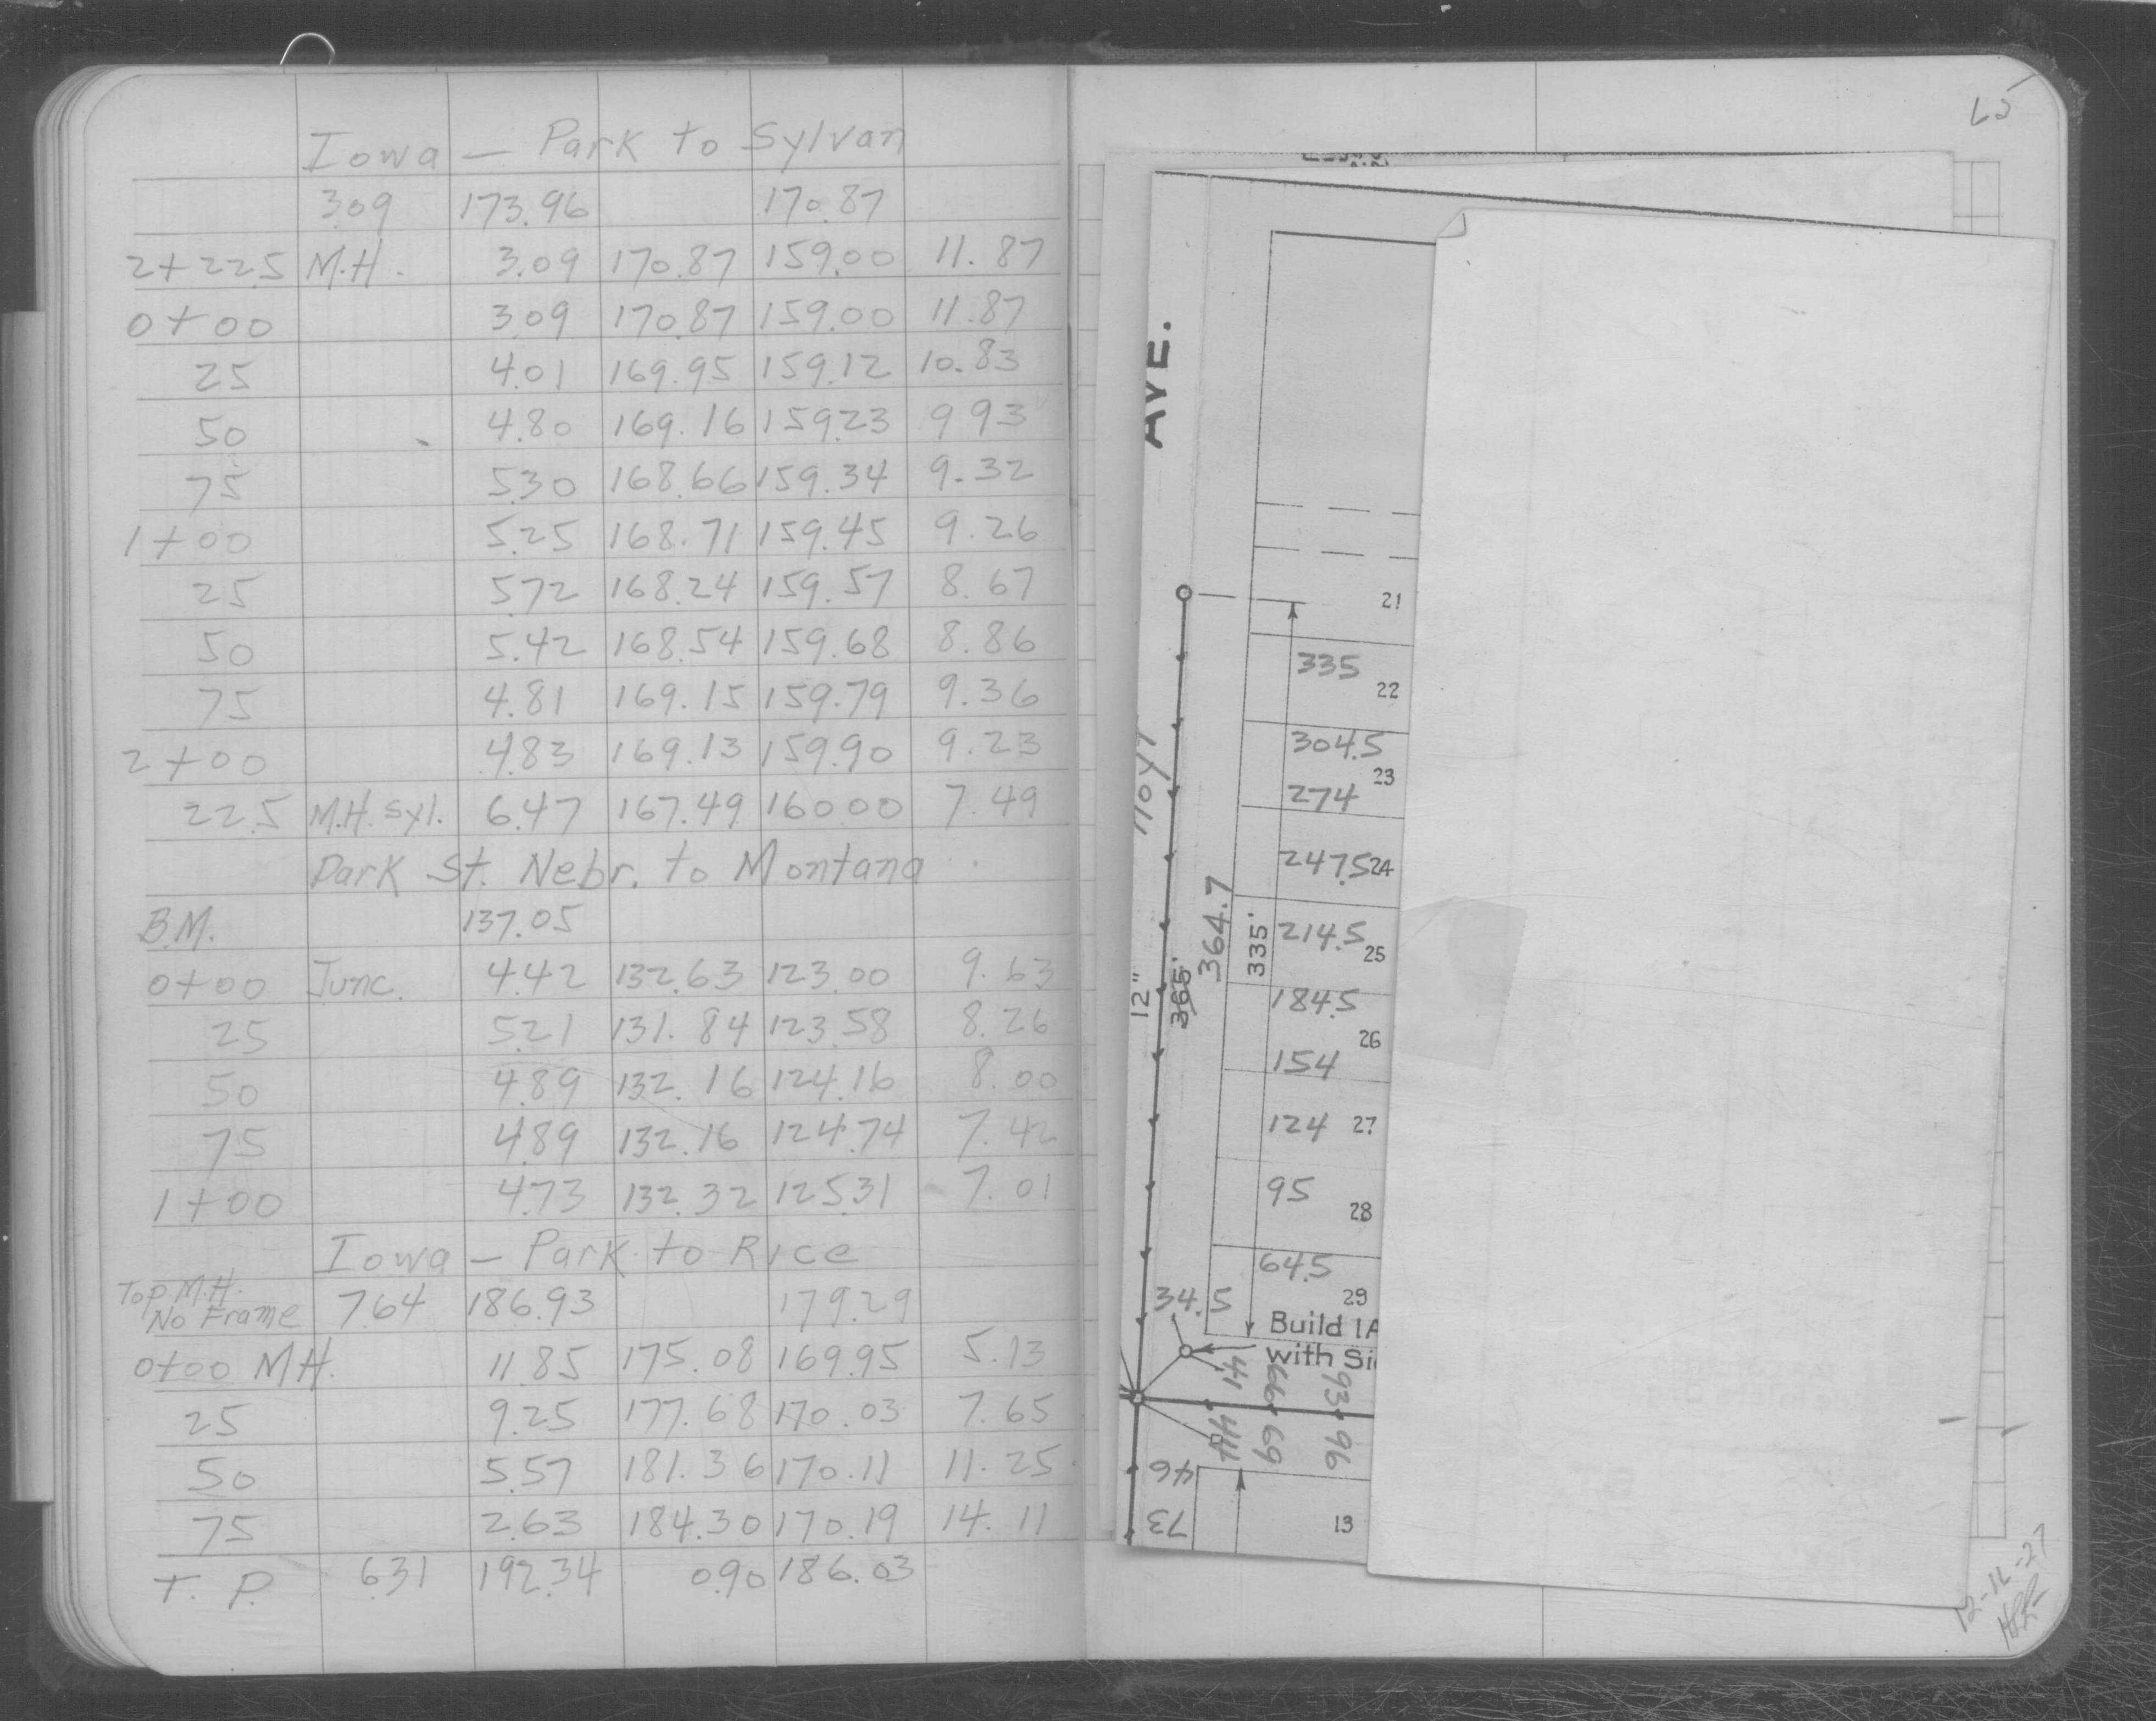 Iowa — Park to Sylvan
3.09 173.96 170.87
2+22.5 M.H. 3.09 170.87 159.00 11.87
0+00 3.09 170.87 159.00 11.87
25 4.01 169.95 159.12 10.83
50 4.80 169.16 159.23 9 93
75 5.30 168.66 159.34 9.32
1+00 5.25 168.71 159.45 9.26
25 5.72 168.24 159.57 8.67
50 5.42 168.54 159.68 8.86
75 4.81 169.15 159.79 9.36
2+00 4.83 169.13 159.90 9.23
22.5 M.H. Syl. 6.47 167.49 160 00 7.49
Park St. Nebr. to Montana
B.M. 137.05
0+00 Junc. 4.42 132.63 123.00 9.63
25 5.21 131.84 123.58 8.26
50 4.89 132.16 124.16 8.00
75 4.89 132.16 124.74 7.42
1+00 4.73 132.32 125.31 7.01
Iowa — Park to Rice
Top M.H.
No Frame 7.64 186.93 179.29
0+00 MH. 11.85 175.08 169.95 5.13
25 9.25 177.68 170.03 7.65
50 5.57 181.36 170.11 11.25
75 2.63 184.30 170.19 14.11
T. P. 6.31 192.34 0.90 186.03
AVE.
Hoyt
12"
365'
364.7
335'
21
335
22
304.5
23
274
247.5 24
214.5
25
184.5
26
154
124 27
95
28
64.5
29
34.5
Build 1A
with Si
14
66
93
44
69
96
46
73
13